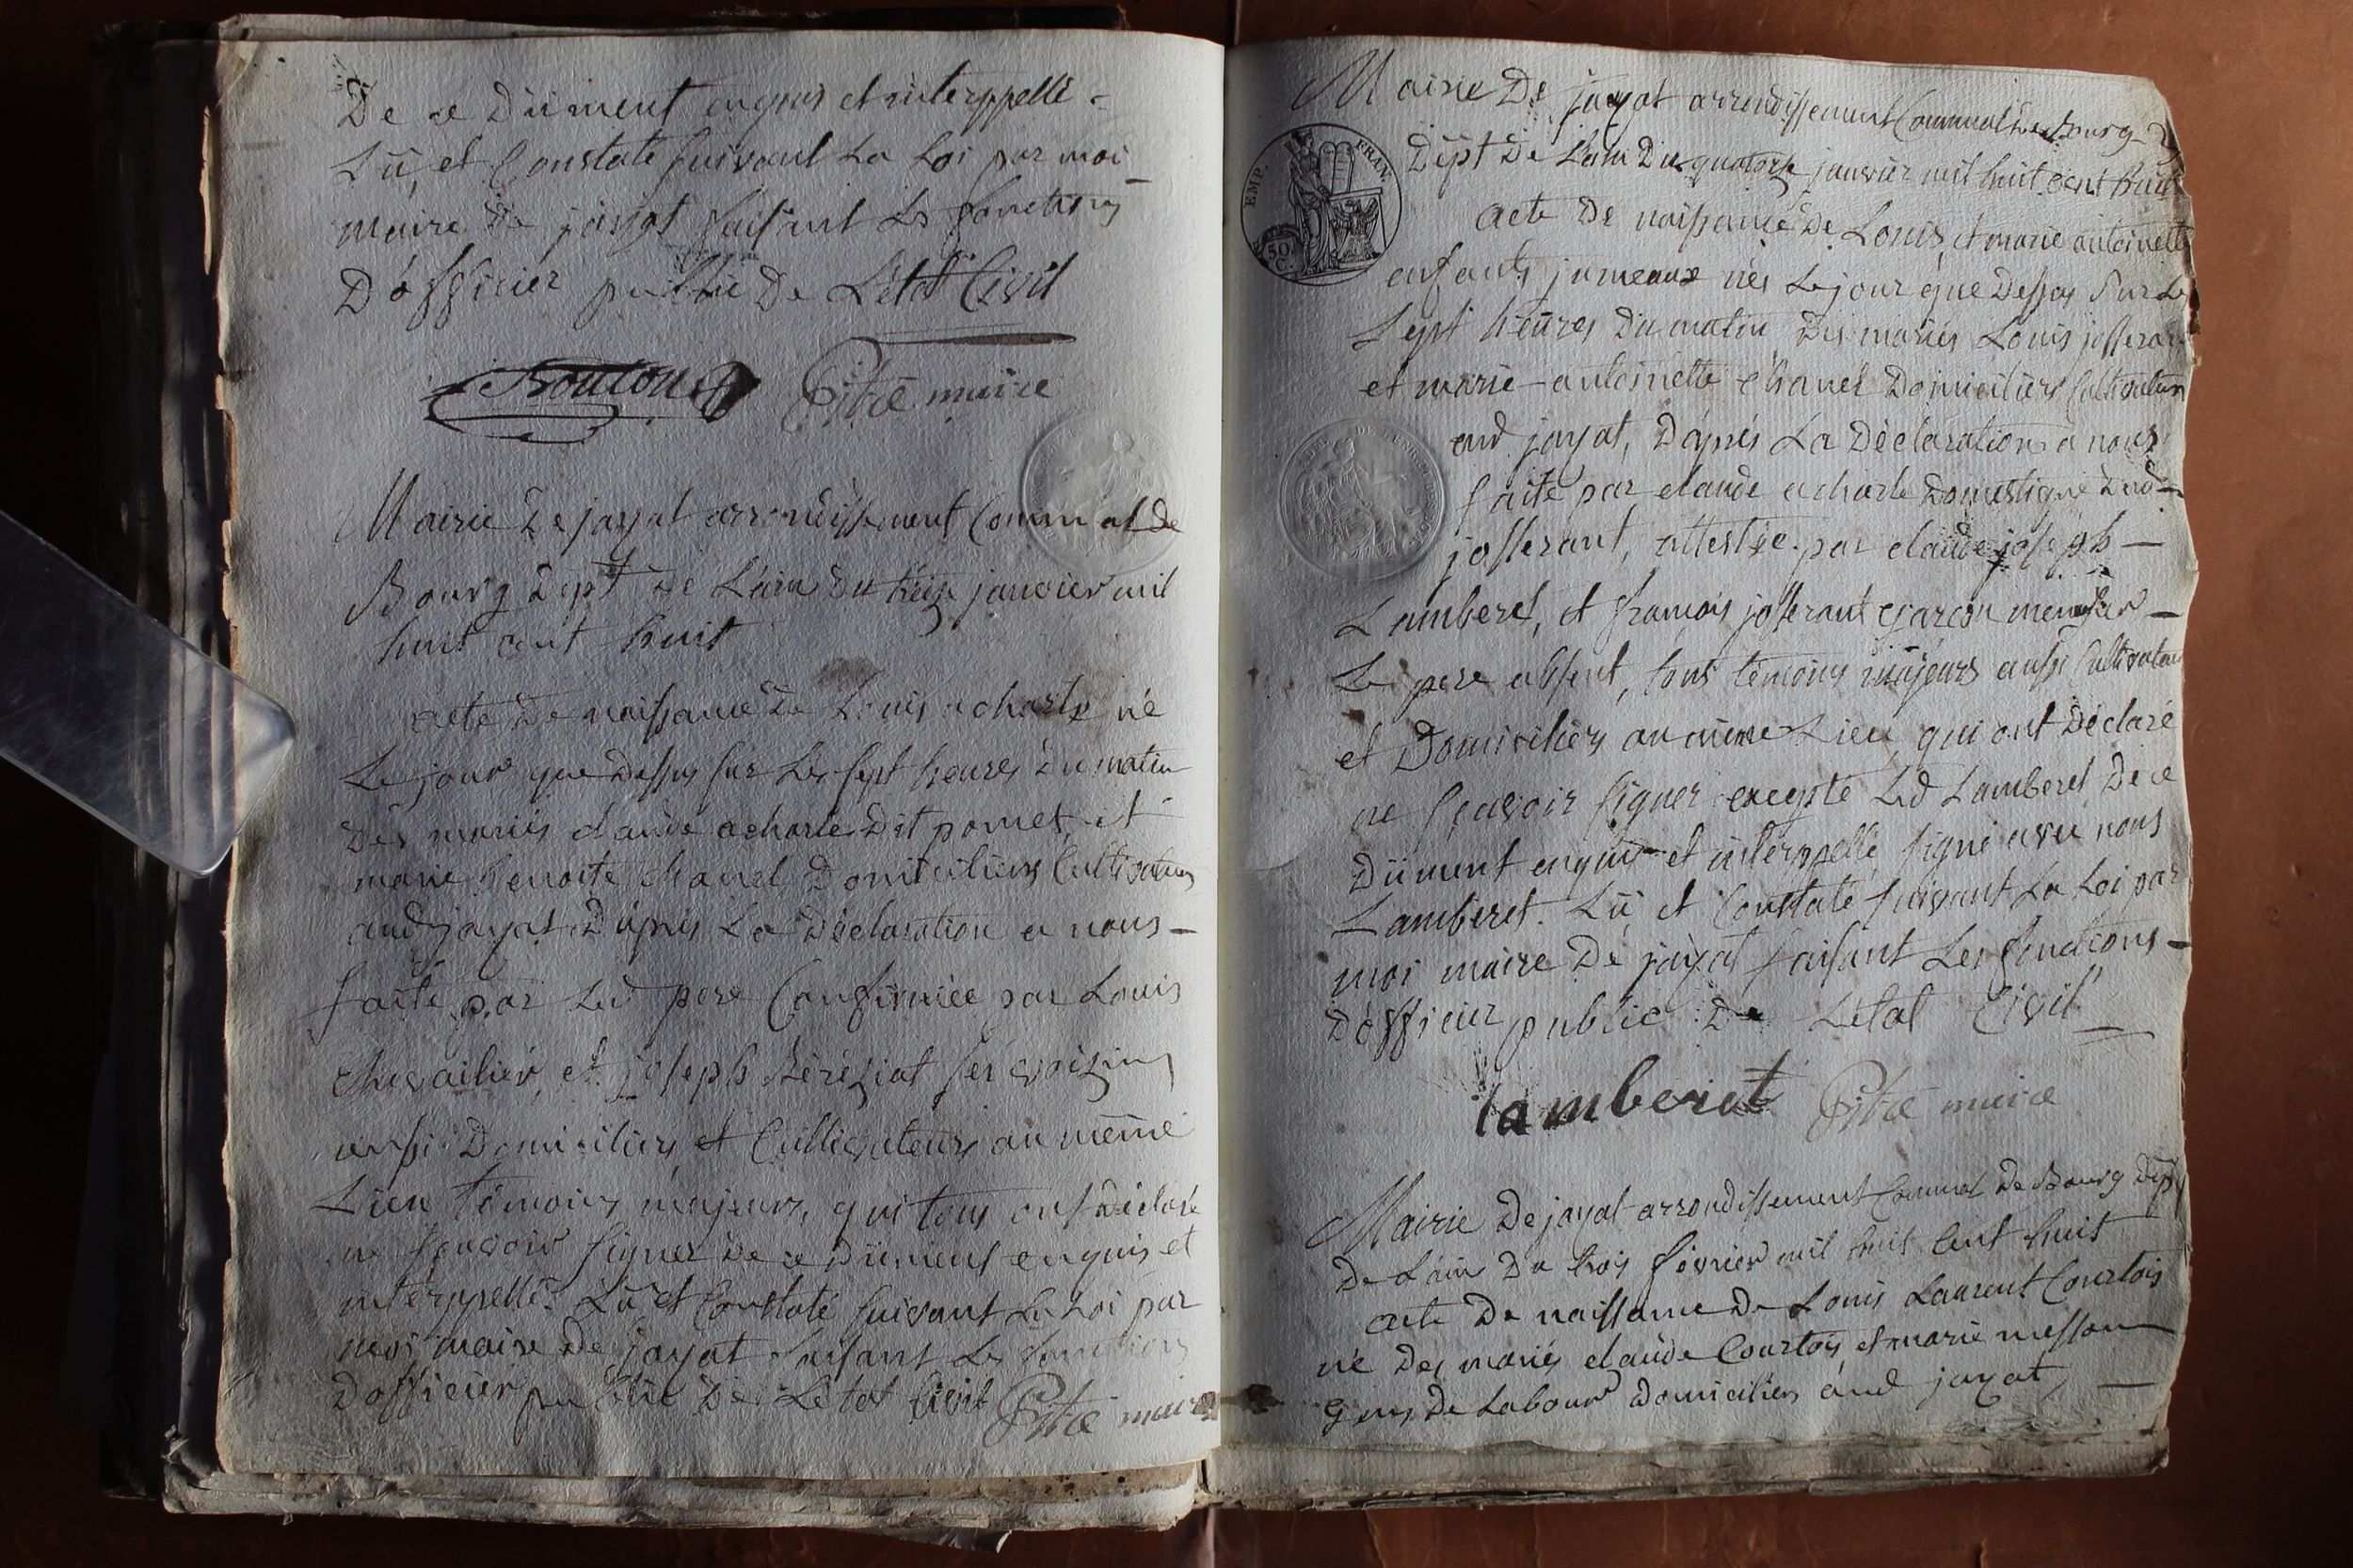 De ce Düment enquis et interppellé =
Lü, et Constaté suivant La Loi par moi
maire De jayat faisant Les fonctions
D'officier public De L'état Civil
Bouton Pitre maire
Mairie De jayat arrondissement Communal De
Bourg Dept De L'ain Du treize janvier mil
huit cent huit
acte De naissance De Louis acharle né
Le jour que Dessus sur Les sept heures Du matin
Des mariés claude acharle Dit pomet, et
marie benoite chanel Domiciliers Cultivateurs
aud jayat D'après La Déclaration a nous -
faite par Led pere Confirmée par Louis
chevailier, et joseph Béréziat ses voizins
aussi Domiciliers et Cultivateurs au même
Lieu témoins majeurs, qui tous ont Déclaré
ne sçavoir signer De ce Düment enquis et
interppellé. Lü et Constaté suivant La Loi par
moi maire De jayat faisant Les fonctions
D'officier public De L'état Civil Pitre maire
Mairie De jayat arrondissement Communal De Bourg
EMP. FRAN.
50 C.
Dept De L'ain Du quatorze janvier mil huit cent huit
acte De naissance De Louis, et marie antoinette
enfants jumeaux nés Le jour que Dessus sur Les
sept heures Du matin Des mariés Louis josserant
et marie-antoinette chanel Domiciliers Cultivateurs
aud jayat, D'après La Déclaration a nous
faite par claude acharle Domestique Dud -
josserant, attestée par claude joseph -
Lamberet, et francois josserant garcon menusier -
Le pere absent, tous témoins majeurs aussi Cultivateurs
et Domiciliers au même Lieu, qui ont Déclaré
ne sçavoir signer excepté Led Lamberet De ce
Düment enquis et interppellé, signé avec nous
Lamberet. Lü, et Constaté suivant La Loi par
moi maire De jayat faisant Les fonctions -
D'officier public De L'état Civil
lamberet Pitre maire
Mairie De jayat arrondissement Communal De Bourg Dept
De L'ain Du trois février mil huit cent huit
acte De naissance De Louis Laurent Courtois
né Des mariés claude Courtois et marie messon
gens De Labour Domiciliers aud jayat, -